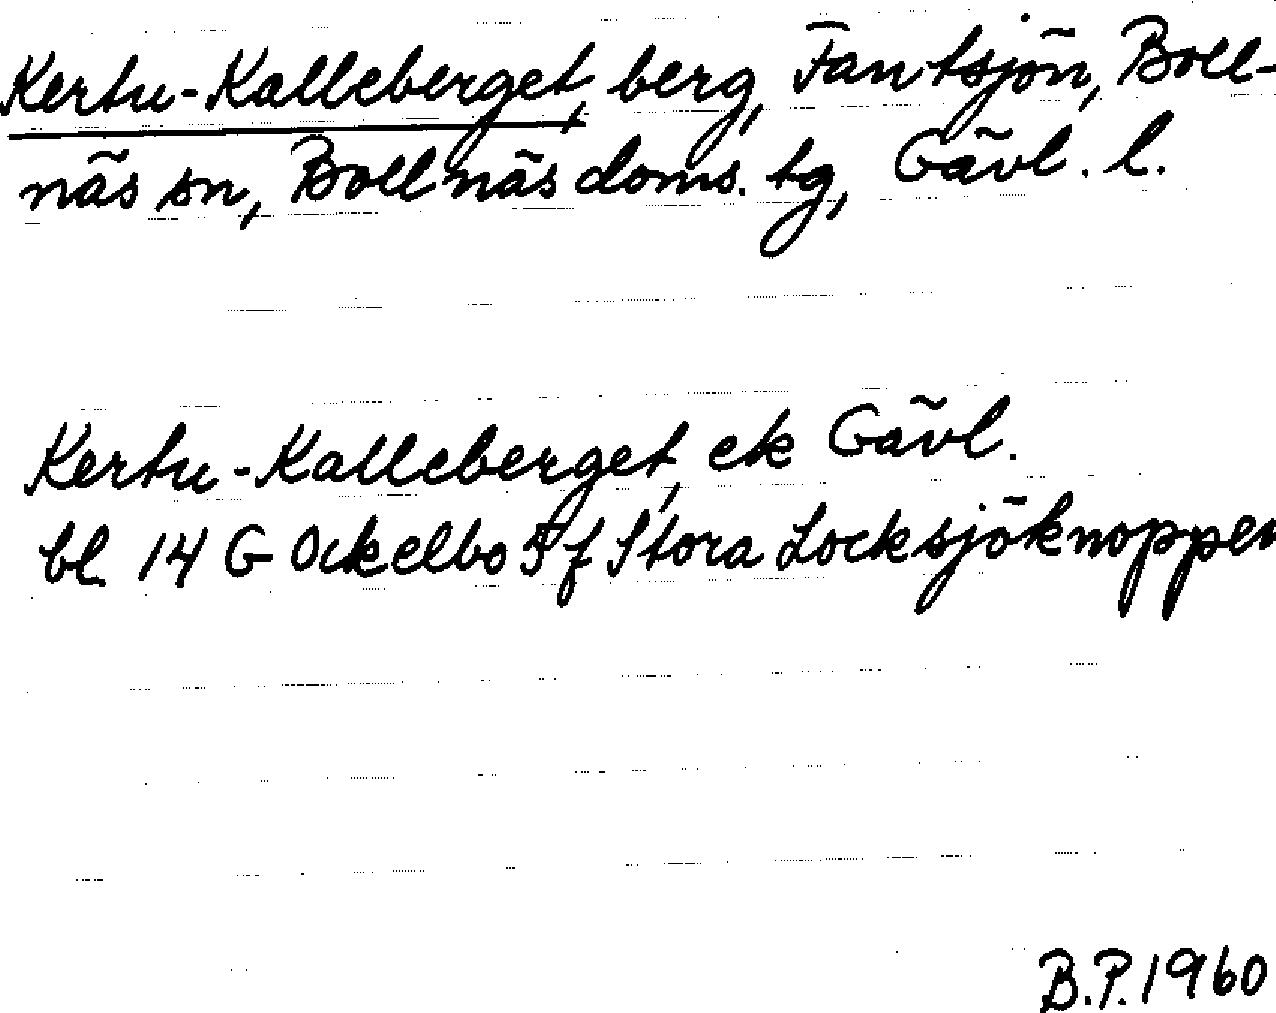 Kertu-Kalleberget, berg, Fantsjön, Boll-
näs sn, Bollnäs doms. tg, Gävl. l.
Kertu-Kalleberget, ek Gävl.
bl. 14 G Ockelbo 5 f Stora Locksjöknoppen
B.P. 1960